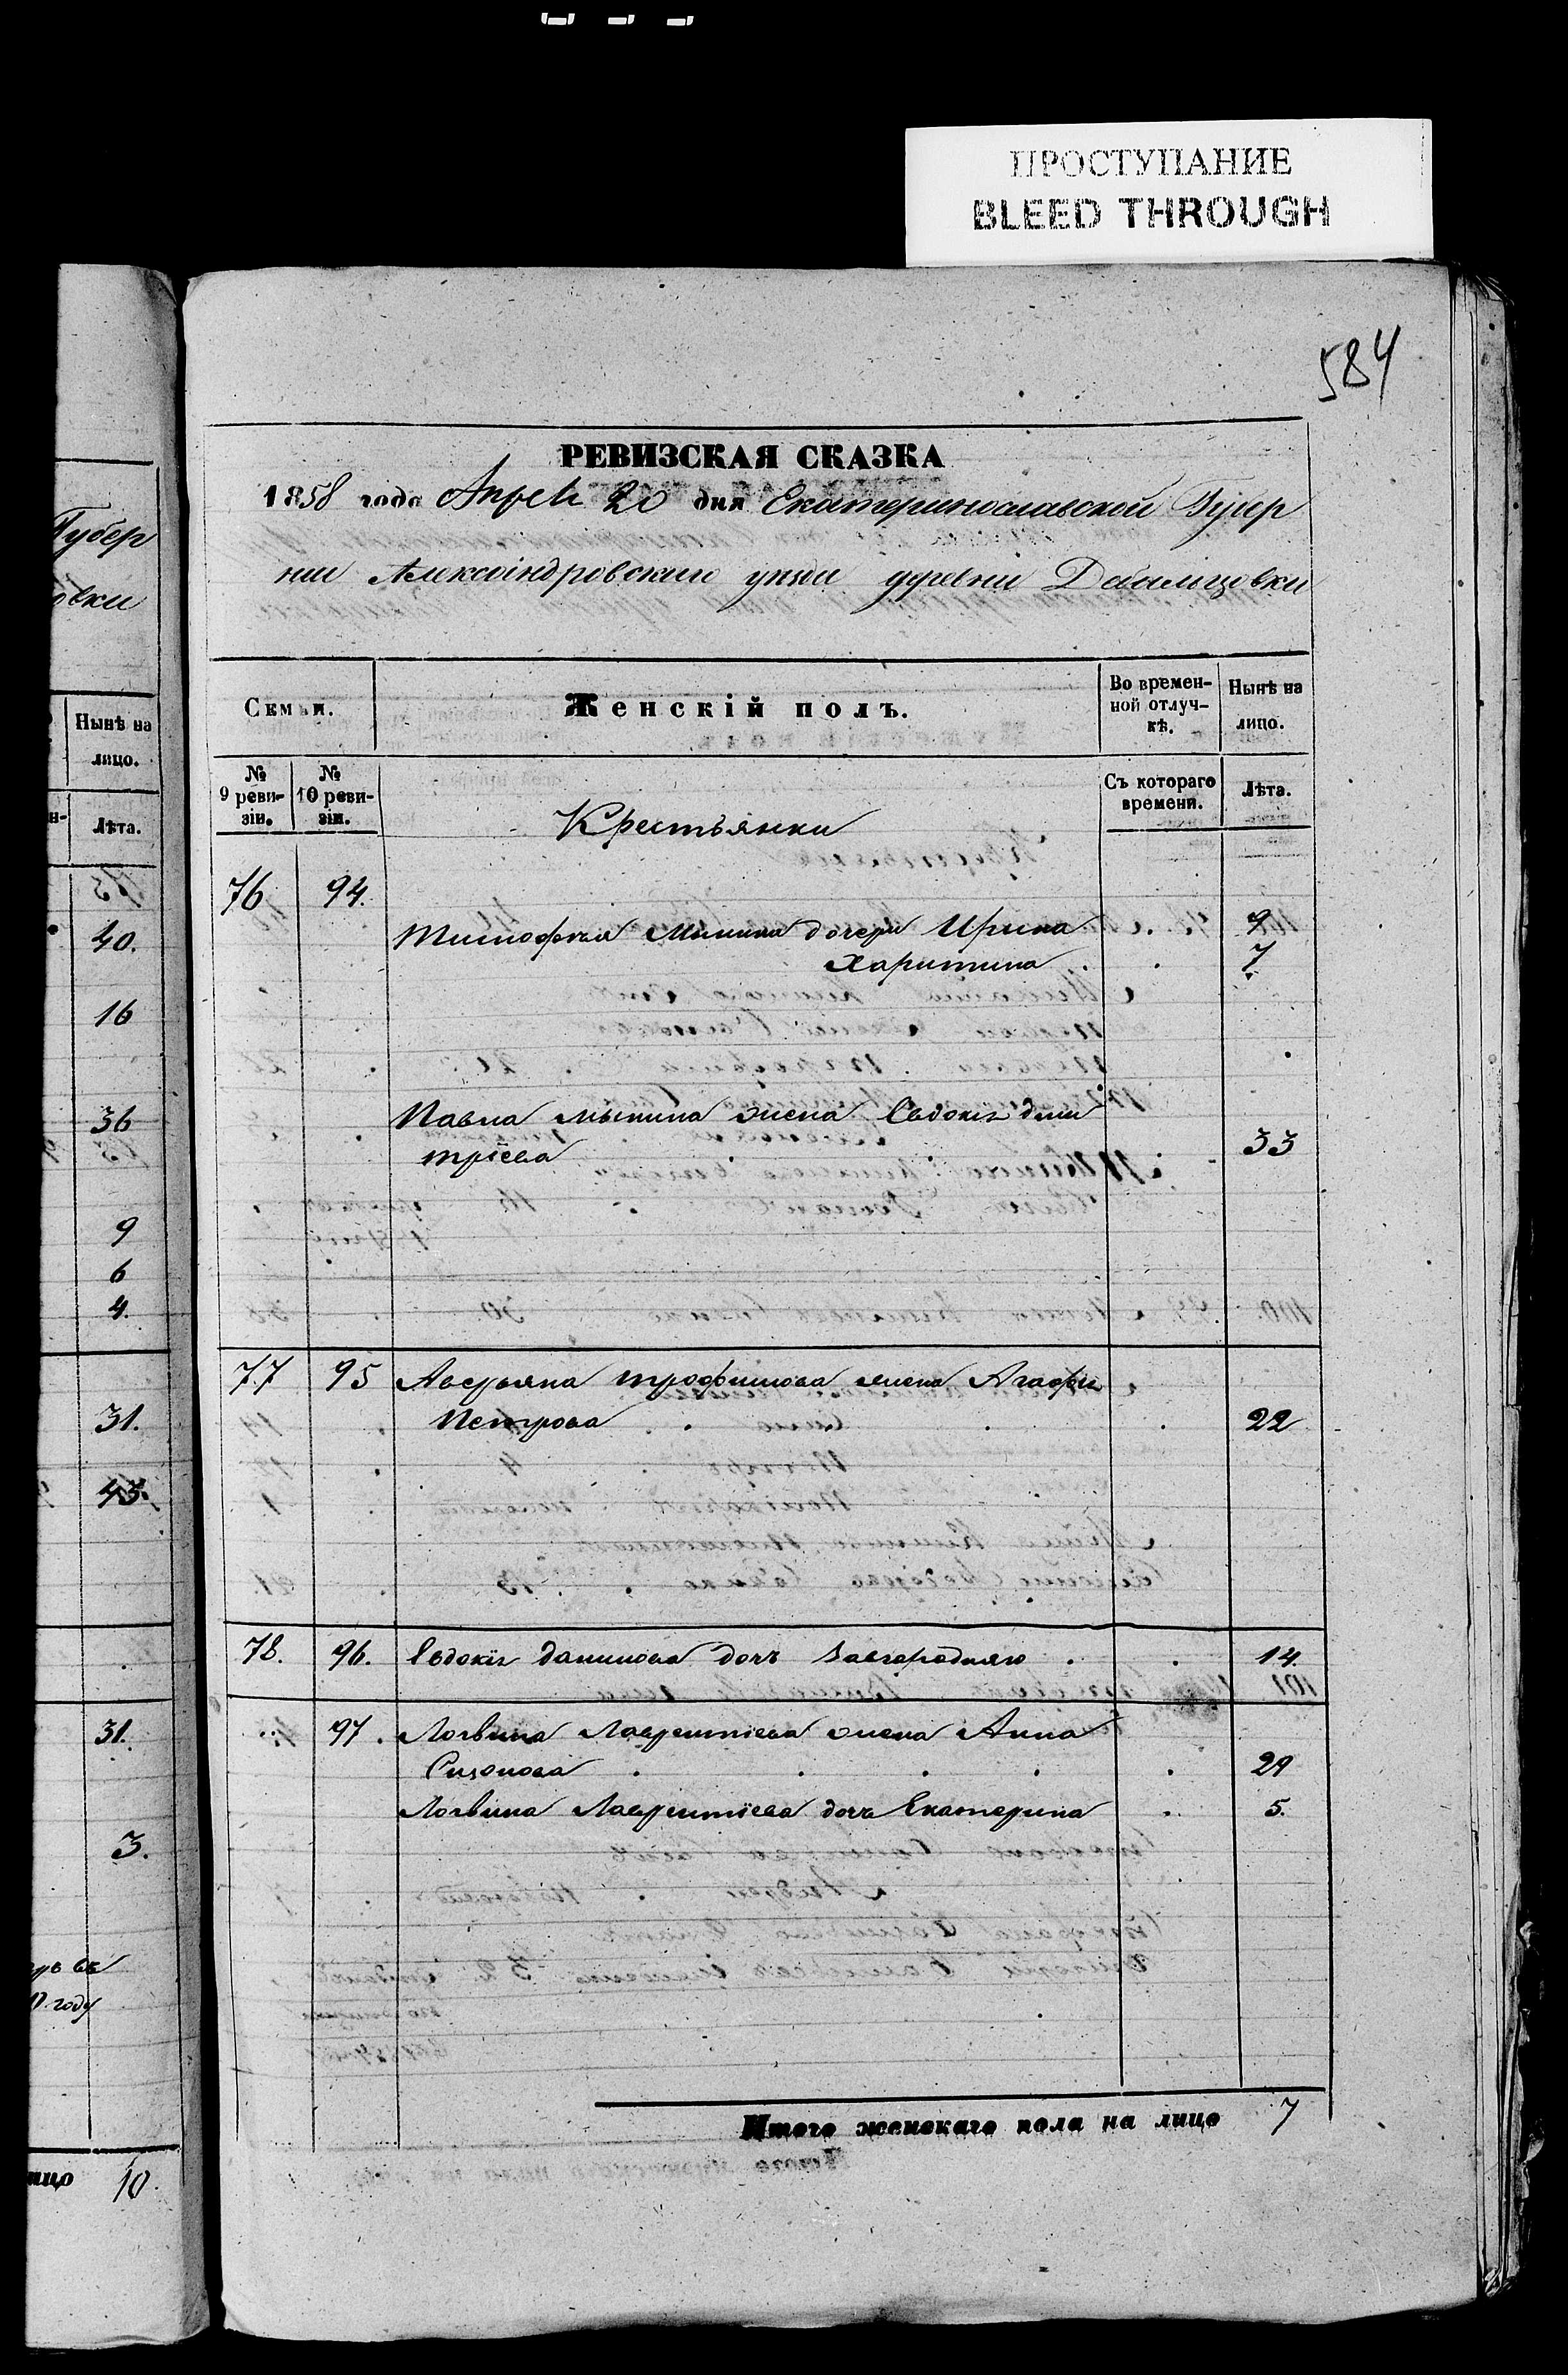 ПРОСТУПАНИЕ
BLEED THROUGH
584
РЕВИЗСКАЯ СКАЗКА
1858 года Апреля 20 дня Екатеринославской Губер
нии Александровскаго уезда деревни
Губер
овки
Нынѣ на
лицо.
Лѣта.
40.
16
36
9
6
4.
31.
43.
31.
3.
году
лицо 10.
Семьи. Женскій полъ. Во времен-
ной отлуч-
кѣ. Нынѣ на
лицо.
№
9 реви-
зіи. №
10 реви-
зіи. Съ котораго
времени. Лѣта.
Крестьянки
76 94.
Тимофея Минина дочери Ирина 9
Харитина 7
Павла Минина жена Евдокія дми
тріева 33
77 95 Аверьяна трофимова жена Агафия
Петрова 22
78. 96. Евдокія данилова дочь Завгородняго 14.
97. Логвина Лаврентіева жена Анна
Сизонова 29
Логвина Лаврентіева дочь Екатерина 5.
Итого женскаго пола на лицо 7